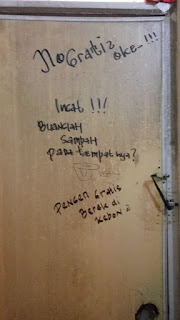 No Gratiz
oke - !!!
Ingat !!!
BUANGLAH
SAMPAH
PADA tempat nya?
PENGEN Gratis
BeRak di
Kebon